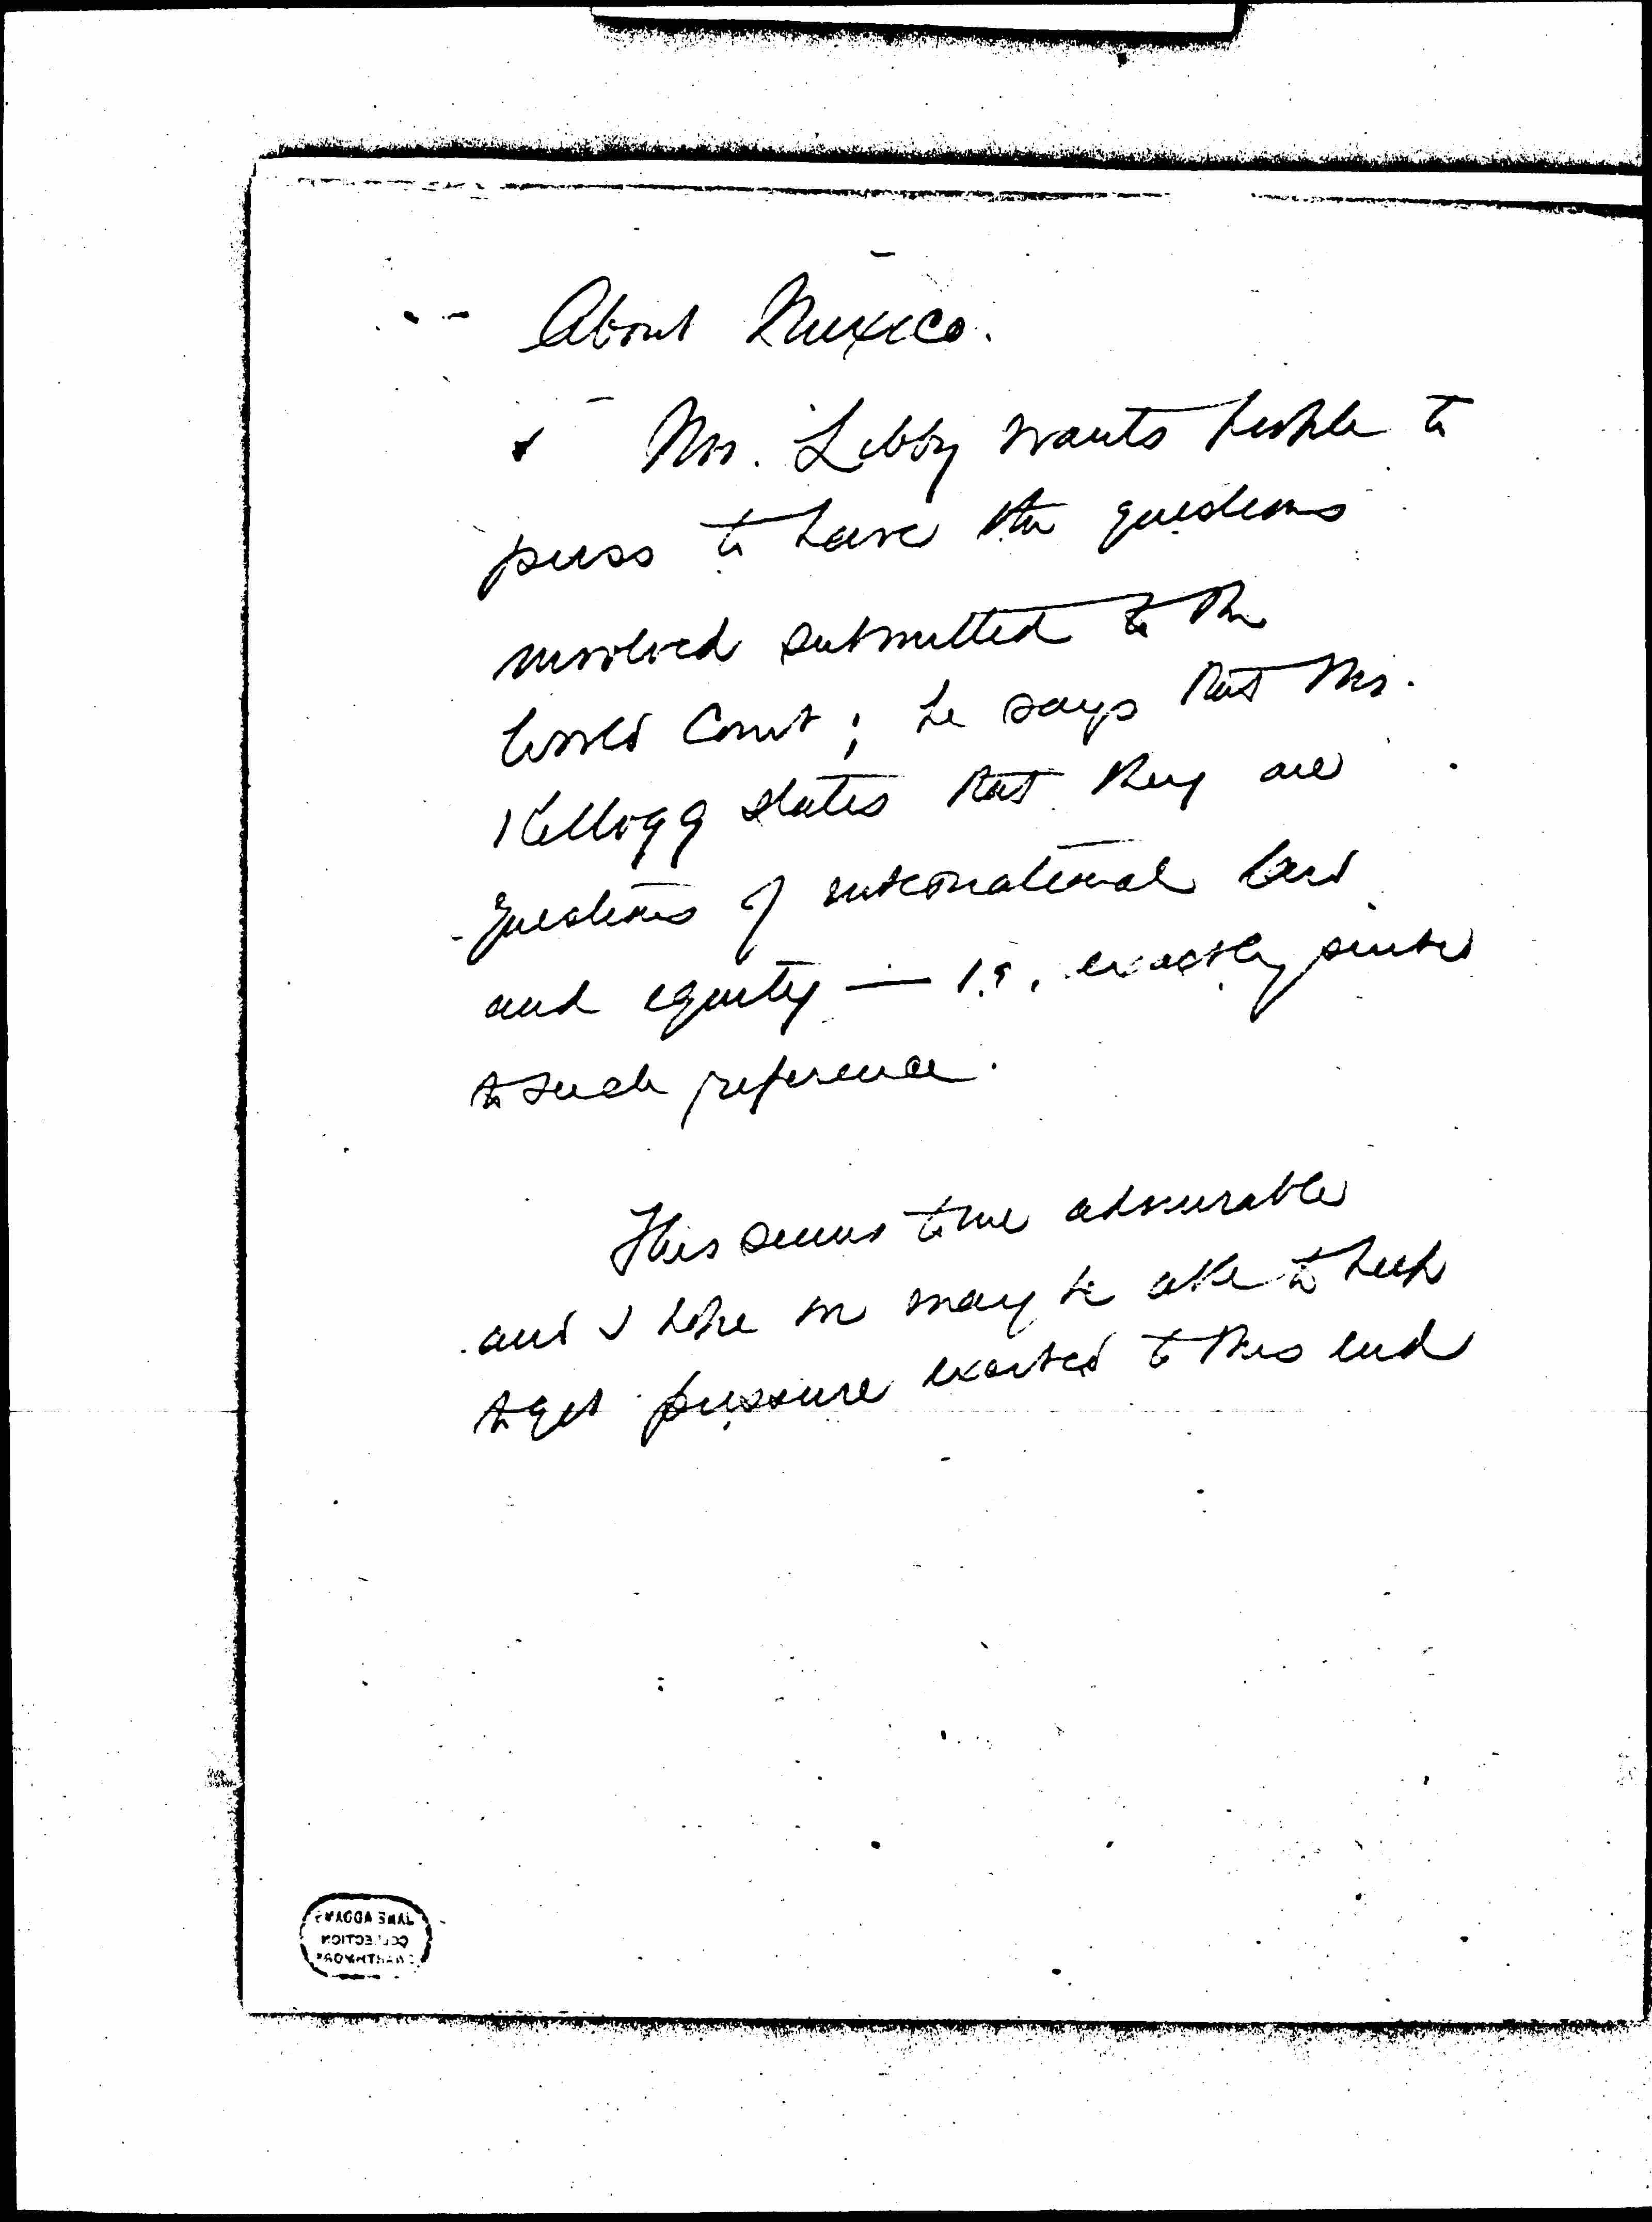 About Mexico.
Mr. Libby wants people to
press to have the questions
involved submitted to the
World Court; he says that Mr.
Kellogg states that they are
questions of international law
and equity — i.e. exactly suited
to such reference.
This seems to me admirable
and I hope we may be able to help
to get pressure exerted to this end
JANE ADDAMS
COLLECTION
SWARTHMORE